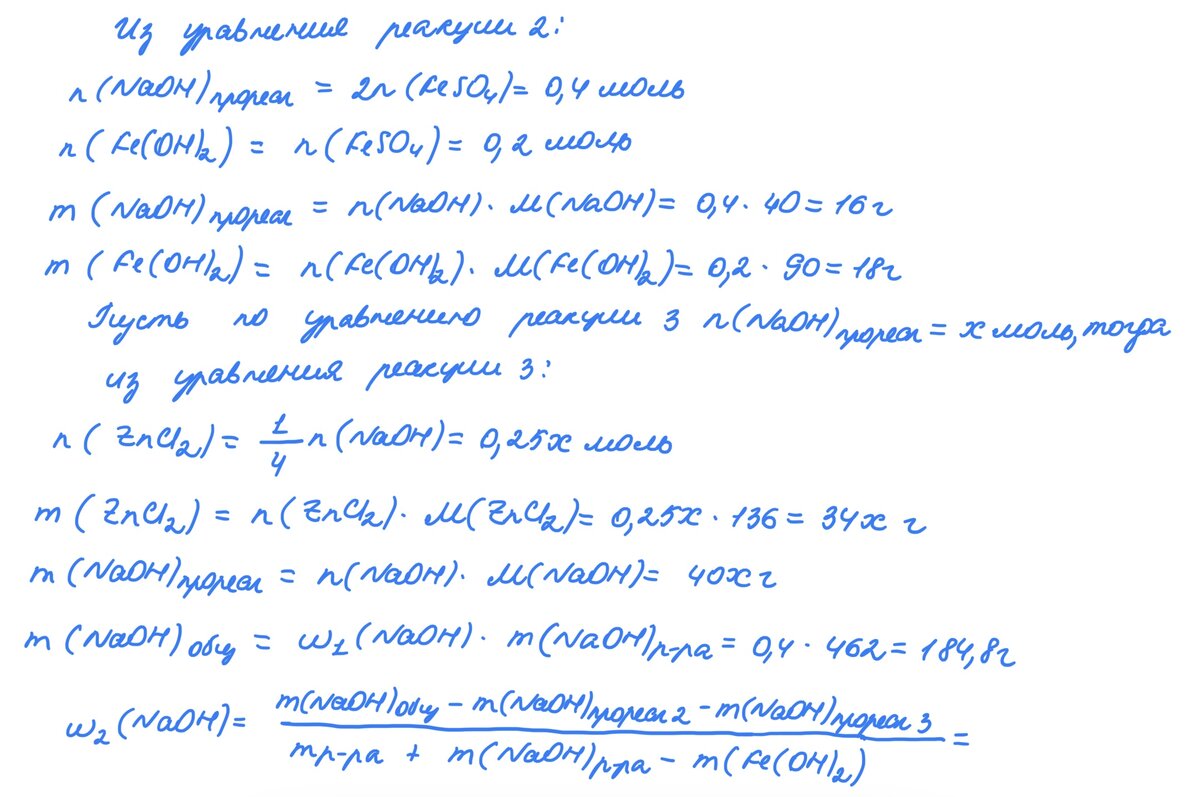 Из уравнения реакции 2:
n(NaOH)прореаг = 2n(FeSO₄) = 0,4 моль
n(Fe(OH)₂) = n(FeSO₄) = 0,2 моль
m(NaOH)прореаг = n(NaOH) · M(NaOH) = 0,4 · 40 = 16 г
m(Fe(OH)₂) = n(Fe(OH)₂) · M(Fe(OH)₂) = 0,2 · 90 = 18 г
Пусть по уравнению реакции 3 n(NaOH)прореаг = x моль, тогда
из уравнения реакции 3:
n(ZnCl₂) = 1/4 n(NaOH) = 0,25x моль
m(ZnCl₂) = n(ZnCl₂) · M(ZnCl₂) = 0,25x · 136 = 34x г
m(NaOH)прореаг = n(NaOH) · M(NaOH) = 40x г
m(NaOH)общ = ω₁(NaOH) · m(NaOH)р-ра = 0,4 · 462 = 184,8 г
ω₂(NaOH) = (m(NaOH)общ - m(NaOH)прореаг 2 - m(NaOH)прореаг 3) / (mр-ра + m(NaOH)р-ра - m(Fe(OH)₂)) =